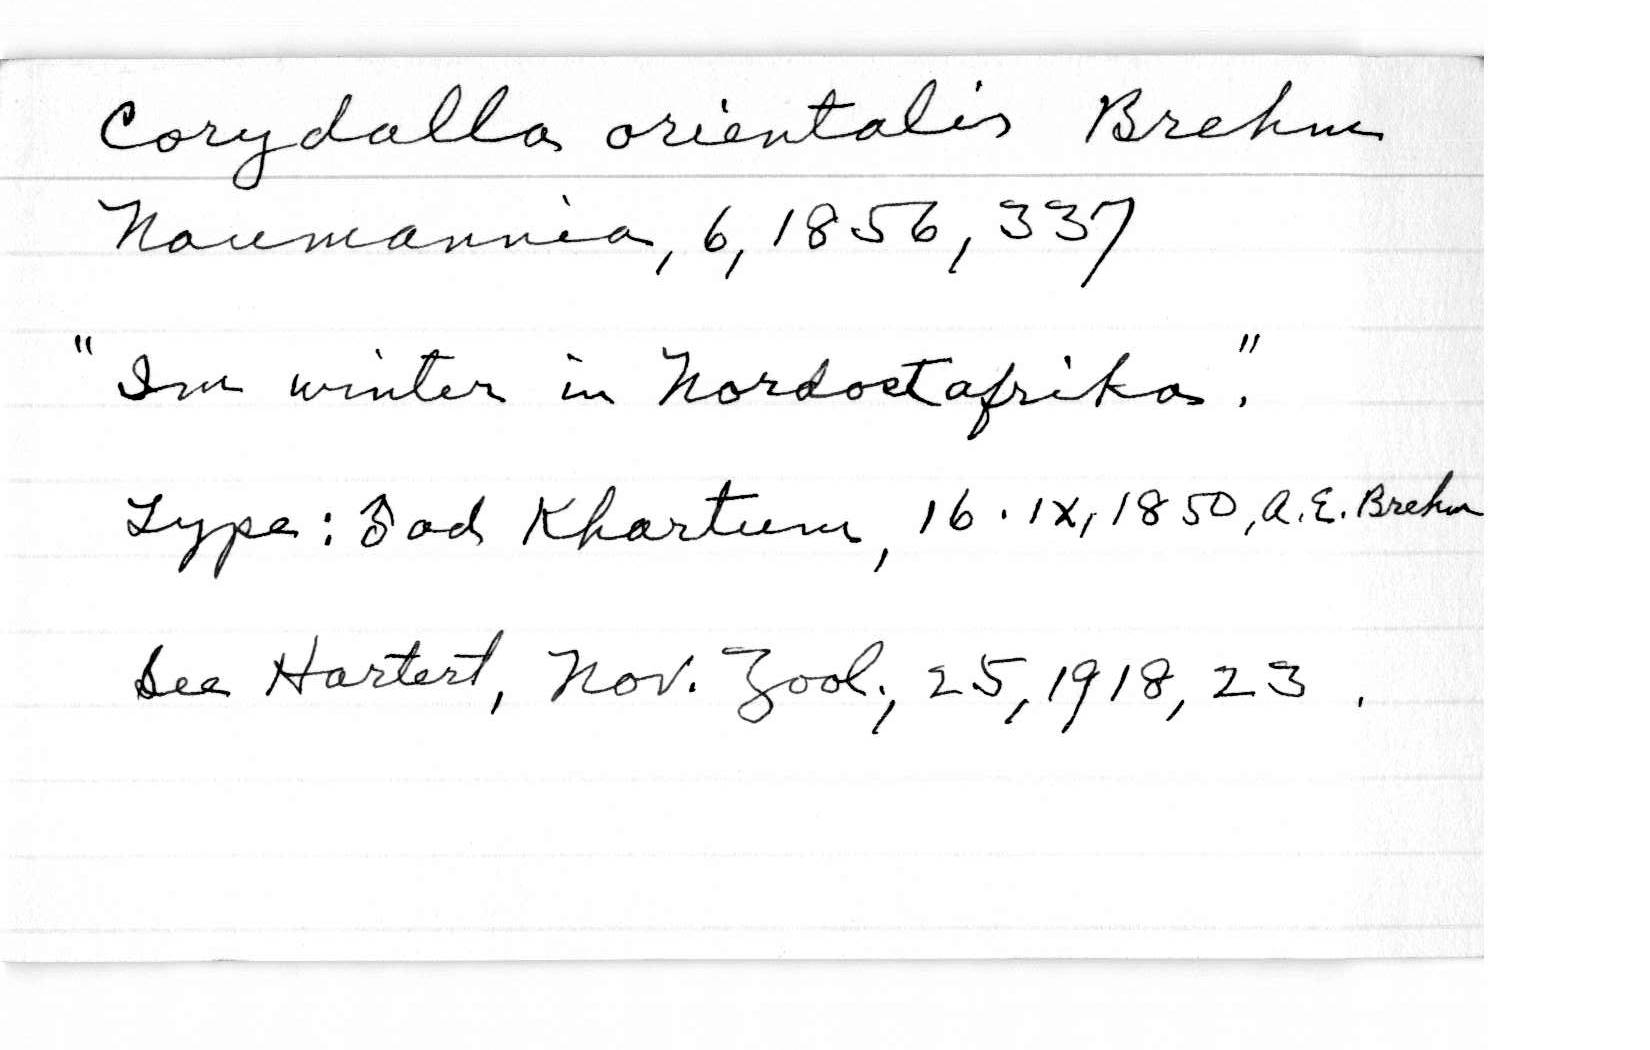 Corydalla orientalis Brehm
Naumannia, 6, 1856, 337
"Im winter in Nordostafrika".
Type: ♂ ad Khartum, 16.IX,1850, A.E. Brehm
See Hartert, Nov. Zool., 25, 1918, 23.